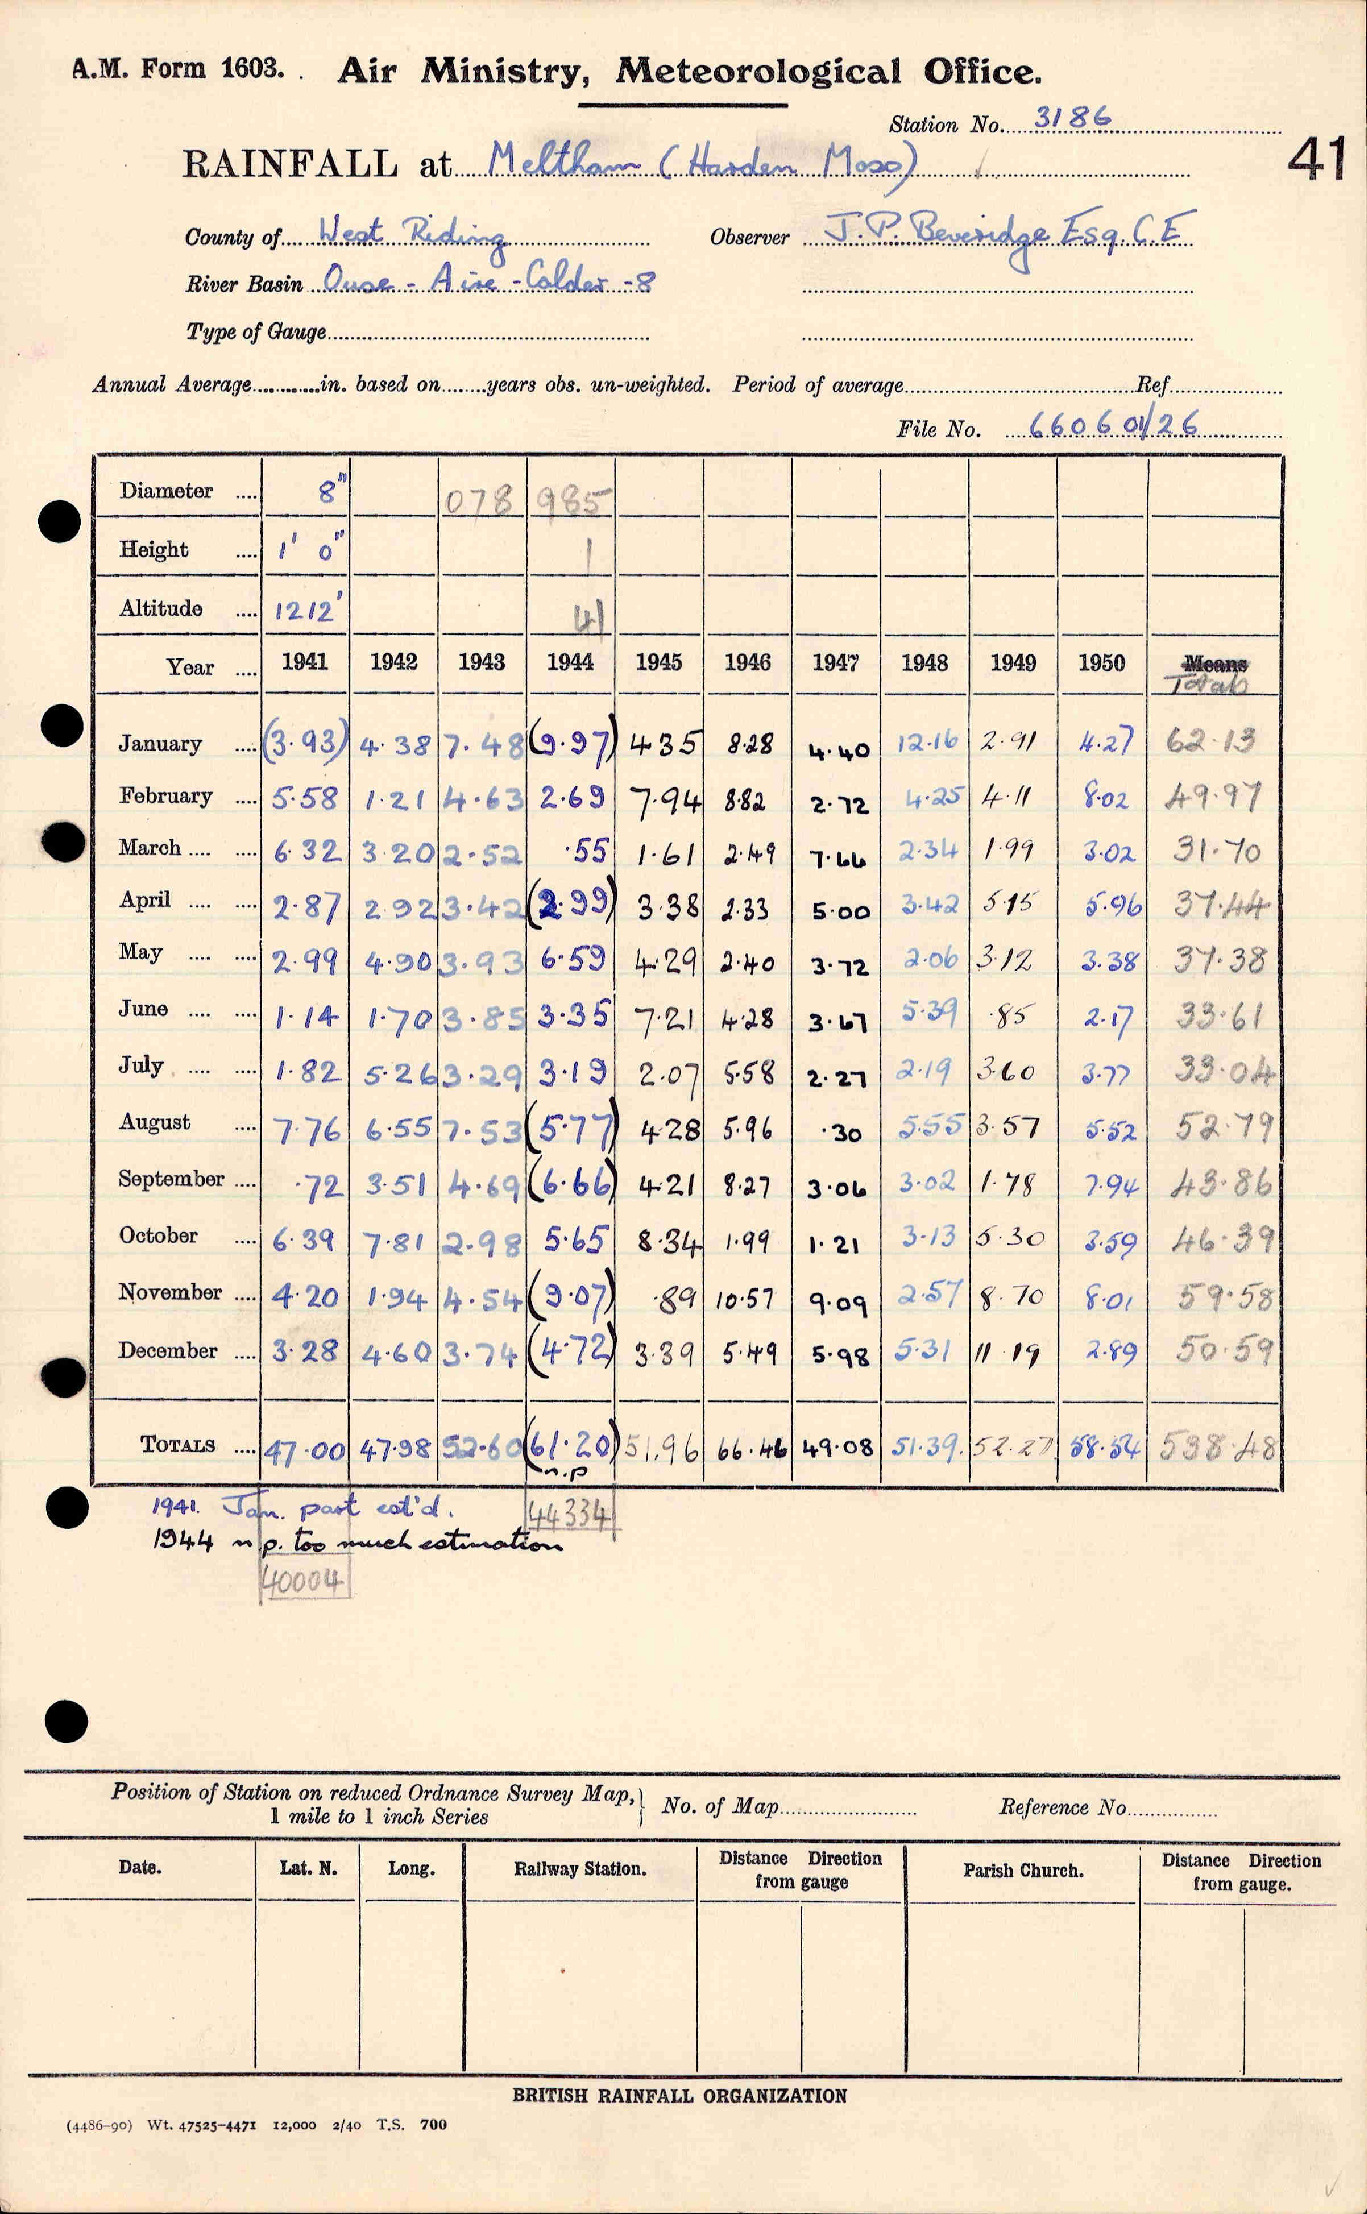 A.M. Form 1603. Air Ministry, Meteorological Office.
Station No. 3186
41
RAINFALL at Meltham (Harden Moss)
County of West Riding Observer J.P. Beveridge Esq. C.E
River Basin Ouse - Aire - Calder - 8
Type of Gauge
Annual Average in. based on years obs. un-weighted. Period of average Ref.
File No. 66060 01/26
Diameter .... 8" 078 985
Height .... 1' 0" 1
Altitude .... 1212' 41
Year .... 1941 1942 1943 1944 1945 1946 1947 1948 1949 1950 Means
Totals
January .... (3.93) 4.38 7.48 (9.97) 4.35 8.28 4.40 12.16 2.91 4.27 62.13
February .... 5.58 1.21 4.63 2.69 7.94 8.82 2.72 4.25 4.11 8.02 49.97
March .... .... 6.32 3.20 2.52 .55 1.61 2.49 7.66 2.34 1.99 3.02 31.70
April .... .... 2.87 2.92 3.42 (2.99) 3.38 2.33 5.00 3.42 5.15 5.96 37.44
May .... .... 2.99 4.90 3.93 6.59 4.29 2.40 3.72 2.06 3.12 3.38 37.38
June .... .... 1.14 1.70 3.85 3.35 7.21 4.28 3.67 5.39 .85 2.17 33.61
July .... .... 1.82 5.26 3.29 3.19 2.07 5.58 2.27 2.19 3.60 3.77 33.04
August .... 7.76 6.55 7.53 (5.77) 4.28 5.96 .30 5.55 3.57 5.52 52.79
September .... .72 3.51 4.69 (6.66) 4.21 8.27 3.06 3.02 1.78 7.94 43.86
October .... 6.39 7.81 2.98 5.65 8.34 1.99 1.21 3.13 5.30 3.59 46.39
November .... 4.20 1.94 4.54 (9.07) .89 10.57 9.09 2.57 8.70 8.01 59.58
December .... 3.28 4.60 3.74 (4.72) 3.39 5.49 5.98 5.31 11.19 2.89 50.59
TOTALS .... 47.00 47.98 52.60 (61.20) 51.96 66.46 49.08 51.39. 52.27 58.54 538.48
n.p
1941. Jan. part est'd. 44334
1944 n.p. too much estimation
40004
Position of Station on reduced Ordnance Survey Map, } No. of Map Reference No.
1 mile to 1 inch Series
Date. Lat. N. Long. Railway Station. Distance Direction from gauge Parish Church. Distance Direction from gauge.
BRITISH RAINFALL ORGANIZATION
(4486-90) Wt. 47525-4471 12,000 2/40 T.S. 700